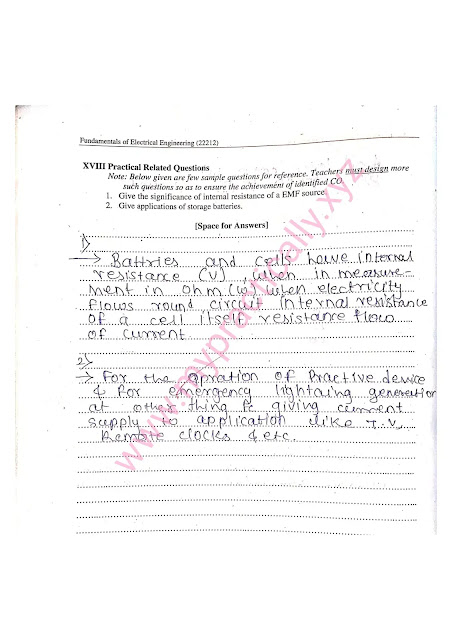 Fundamentals of Electrical Engineering (22212)
XVIII Practical Related Questions
Note: Below given are few sample questions for reference. Teachers must design more
such questions so as to ensure the achievement of identified CO
1. Give the significance of internal resistance of a EMF source
2. Give applications of storage batteries.
[Space for Answers]
1)
→ Battries and cells have internal
resistance (V) , when in measure-
ment in ohm (w) when electricity
flows round circuit internal resistance
of a cell itself resistance flow
of current
2)
→ For the opration of Practive device
& for emergency lightaing generation
at other thing & giving current
supply to application like T.V.
Remote clocks & etc.
www.mypractically.xyz